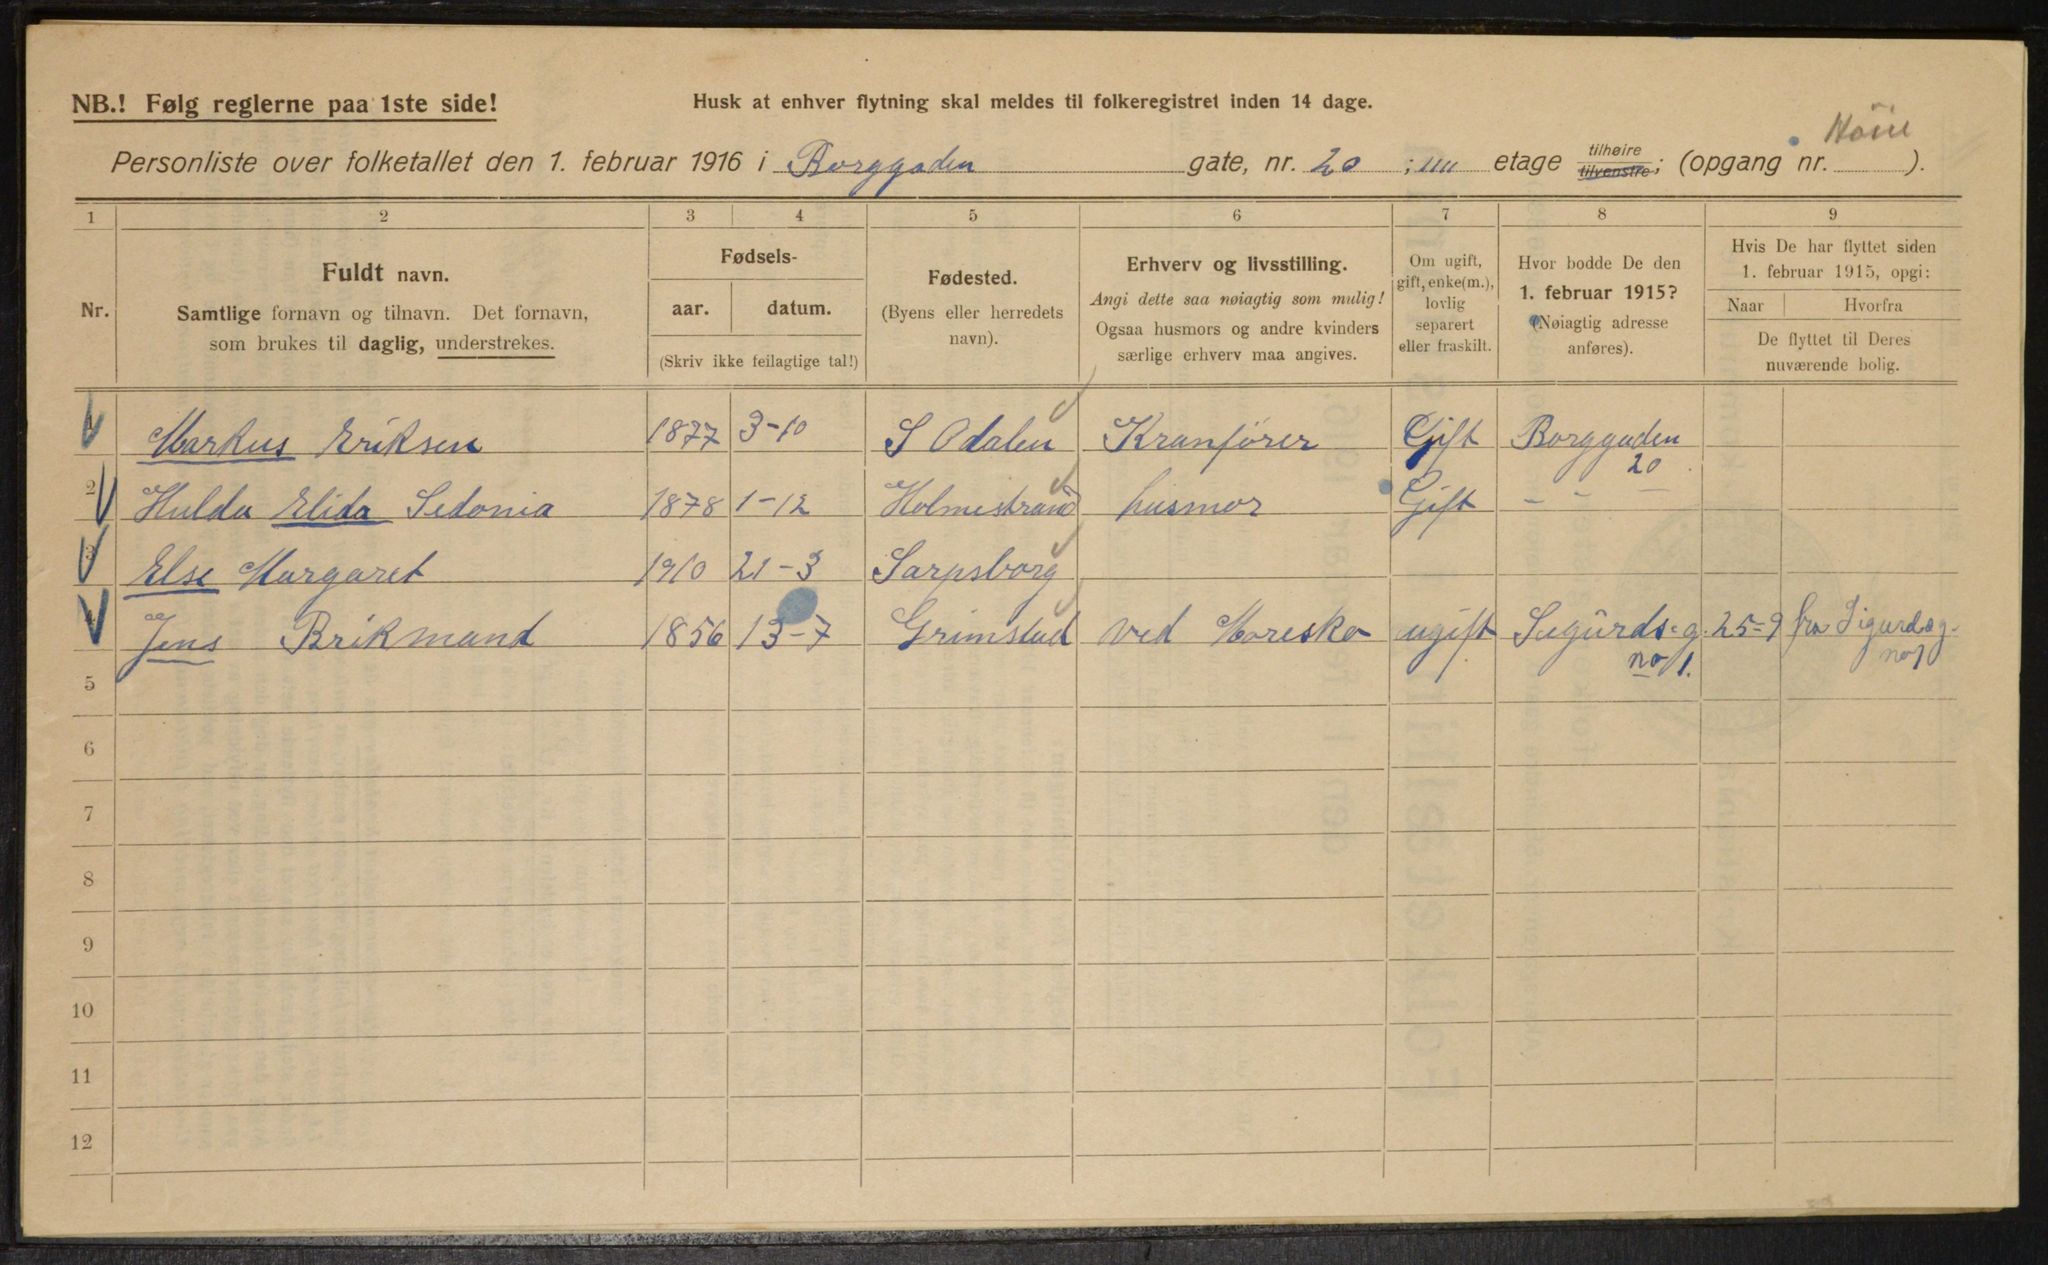 NB.! Følg reglerne paa 1ste side!
Husk at enhver flytning skal meldes til folkeregistret inden 14 dage.
Personliste over folketallet den 1. februar 1916 i Borggaden gate, nr. 20 ; IIII etage tilhøire tilvenstre; (opgang nr. ).
1 2 3 4 5 6 7 8 9
Nr.
Fuldt navn.
Samtlige fornavn og tilnavn. Det fornavn,
som brukes til daglig, understrekes.
Fødsels-
aar. datum.
(Skriv ikke feilagtige tal!)
Fødested.
(Byens eller herredets
navn).
Erhverv og livsstilling.
Angi dette saa nøiagtig som mulig!
Ogsaa husmors og andre kvinders
særlige erhverv maa angives.
Om ugift,
gift, enke(m.),
lovlig
separert
eller fraskilt.
Hvor bodde De den
1. februar 1915?
(Nøiagtig adresse
anføres).
Hvis De har flyttet siden
1. februar 1915, opgi:
Naar Hvorfra
De flyttet til Deres
nuværende bolig.
1 Markus Eriksen 1877 3-10 S Odalen Kranfører Gift Borggaden
20
2 Hulda Elida Sedonia 1878 1-12 Holmestrand husmor Gift – " –
3 Else Margaret 1910 21-3 Sarpsborg
4 Jens Brikmand 1856 13-7 Grimstad ved Moresko ugift Sugurds-g. 25-9 fra Sigurdsg.
no 1. no 1
5
6
7
8
9
10
11
12